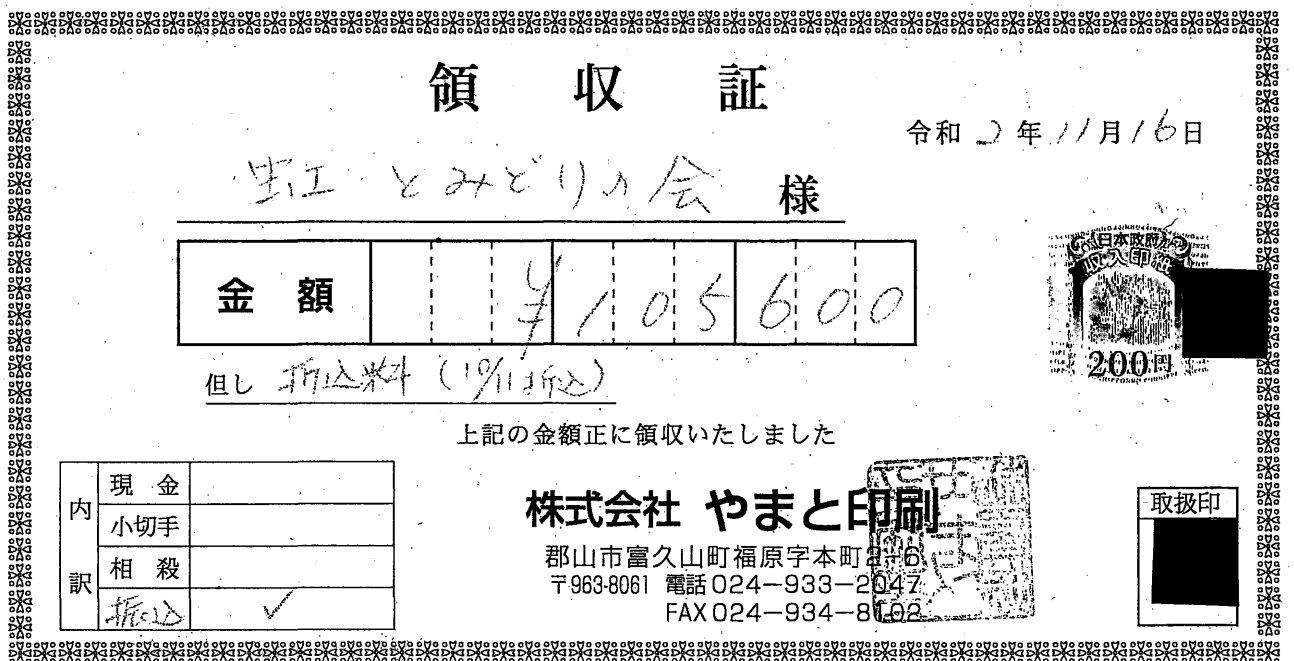 領収証
令和 2年 11月 16日
虹とみどりの会 様
金額 ¥105600
日本政府
収入印紙
200円
但し 折込料 (10/11折込)
上記の金額正に領収いたしました
内訳
現金
小切手
相殺
振込 ✓
株式会社 やまと印刷
郡山市富久山町福原字本町2-6
〒963-8061 電話 024-933-2047
FAX 024-934-8102
取扱印